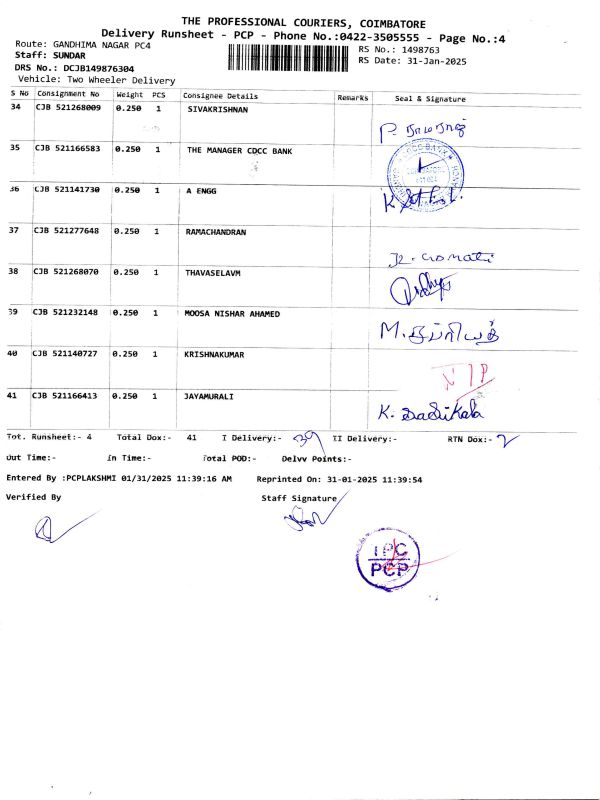 THE PROFESSIONAL COURIERS, COIMBATORE
Delivery Runsheet - PCP - Phone No.:0422-3505555 - Page No.:4
Route: GANDHIMA NAGAR PC4 RS No.: 1498763
Staff: SUNDAR RS Date: 31-Jan-2025
DRS No.: DCJB149876304
Vehicle: Two Wheeler Delivery
S No Consignment No Weight PCS Consignee Details Remarks Seal & Signature
34 CJB 521268009 0.250 1 SIVAKRISHNAN
35 CJB 521166583 0.250 1 THE MANAGER CDCC BANK
36 CJB 521141730 0.250 1 A ENGG
37 CJB 521277648 0.250 1 RAMACHANDRAN
38 CJB 521268070 0.250 1 THAVASELAVM
39 CJB 521232148 0.250 1 MOOSA NISHAR AHAMED
40 CJB 521140727 0.250 1 KRISHNAKUMAR
41 CJB 521166413 0.250 1 JAYAMURALI K. Sasikala
Tot. Runsheet:- 4 Total Dox:- 41 I Delivery:- 39 II Delivery:- RTN Dox:- 2
Out Time:- In Time:- Total POD:- Delvv Points:-
Entered By :PCPLAKSHMI 01/31/2025 11:39:16 AM Reprinted On: 31-01-2025 11:39:54
Verified By Staff Signature
PCP